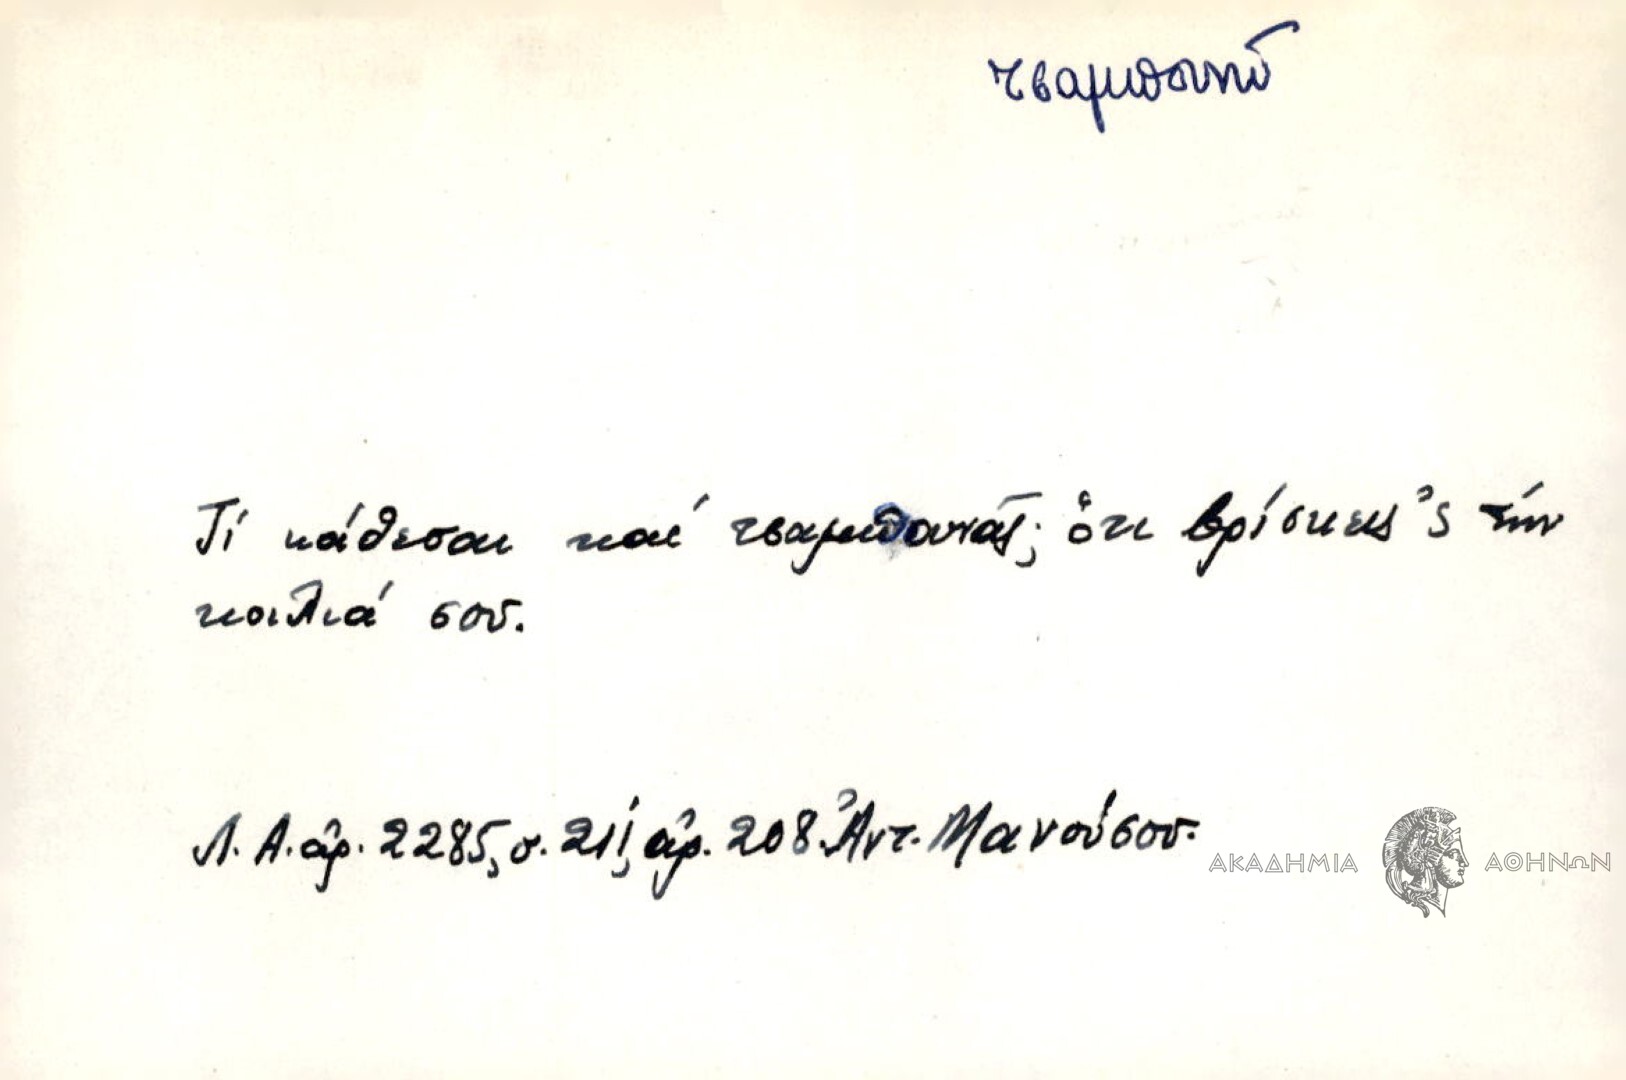 τσαμπουνῶ
Τί κάθεσαι καί τσαμπουνᾶς; ὅτι βρίσκεις 'ς τήν
κοιλιά σου.
Λ.Α. ἀρ. 2285, σ. 211, ἀρ. 208. Ἀντ. Μανούσου.
ΑΚΑΔΗΜΙΑ ΑΘΗΝΩΝ